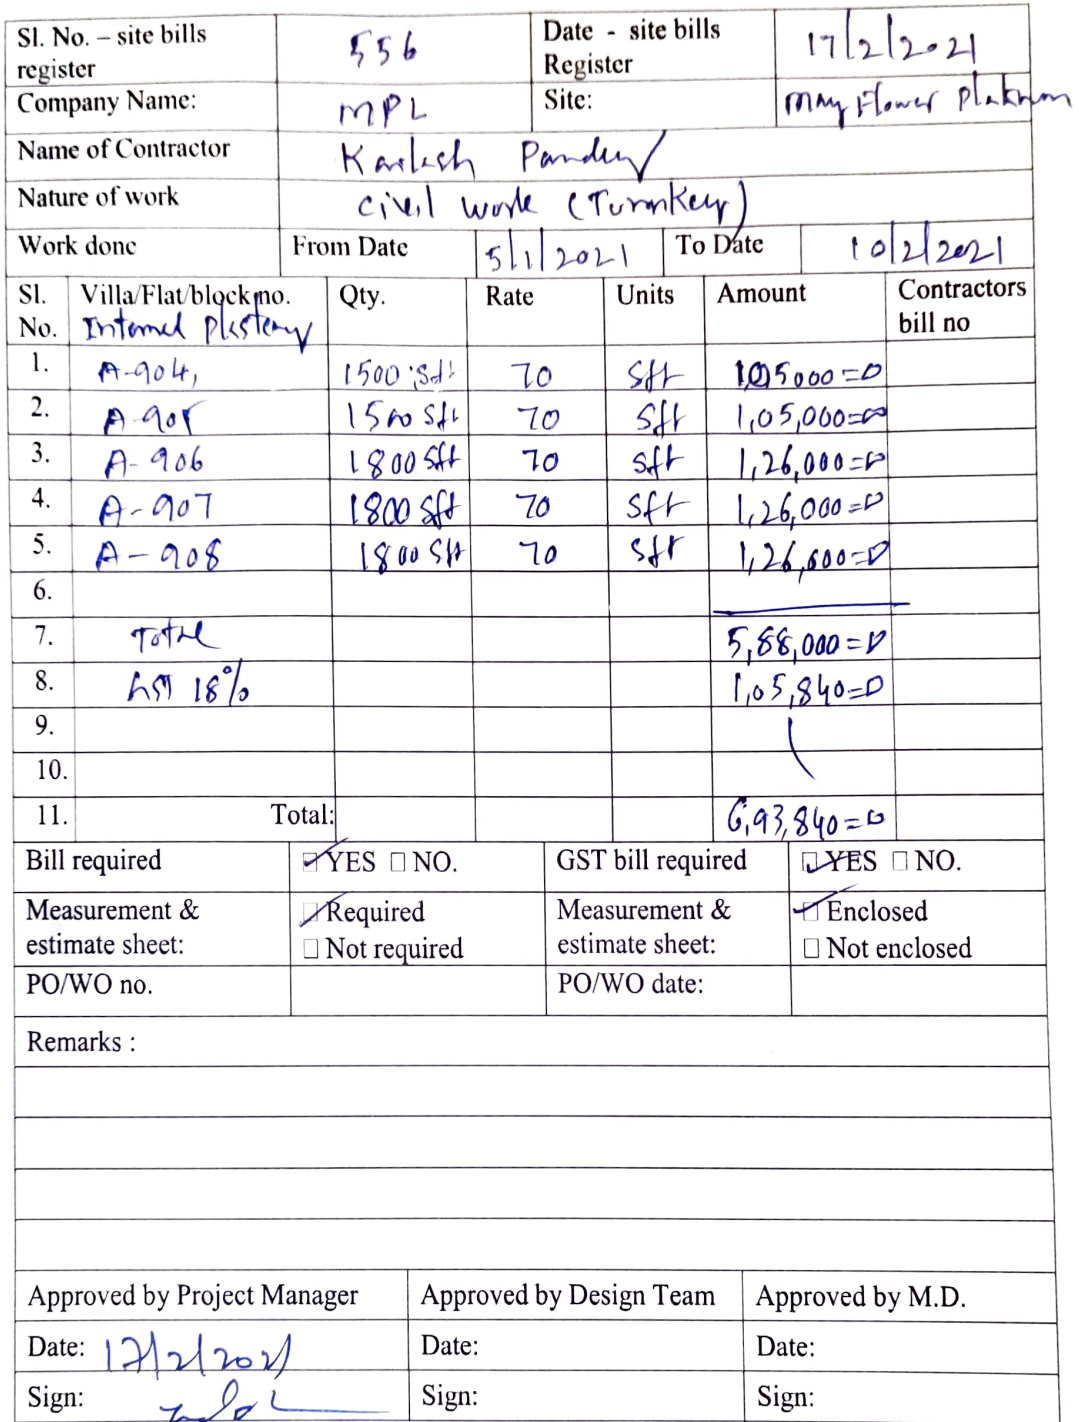 Sl. No. – site bills register 556 Date - site bills Register 17/2/2021
Company Name: MPL Site: May Flower Platinum
Name of Contractor Kailash Pandey
Nature of work civil work (Turnkey)
Work done From Date 5/1/2021 To Date 10/2/2021
Sl. No. Villa/Flat/block no. Internal plastering Qty. Rate Units Amount Contractors bill no
1. A-904, 1500 Sft 70 Sft 105000=0
2. A-905 1500 Sft 70 Sft 1,05,000=00
3. A-906 1800 Sft 70 Sft 1,26,000=0
4. A-907 1800 Sft 70 Sft 1,26,000=0
5. A-908 1800 Sft 70 Sft 1,26,000=0
6.
7. Total 5,88,000=0
8. GST 18% 1,05,840=0
9.
10.
11. Total: 6,93,840=0
Bill required YES NO. GST bill required YES NO.
Measurement & estimate sheet: Required Not required Measurement & estimate sheet: Enclosed Not enclosed
PO/WO no. PO/WO date:
Remarks :
Approved by Project Manager Approved by Design Team Approved by M.D.
Date: 17/2/2021 Date: Date:
Sign: Sign: Sign: